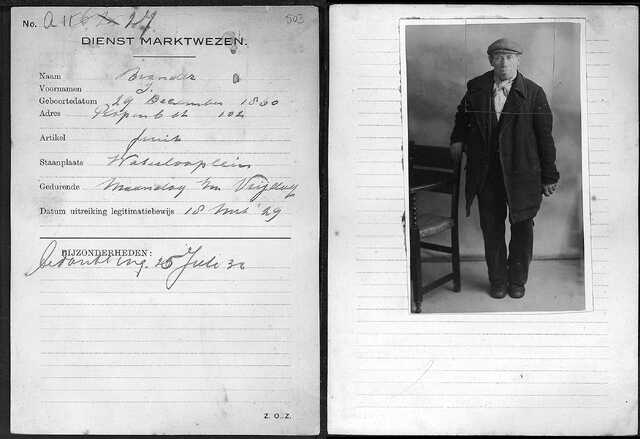 503
No.
DIENST MARKTWEZEN.
Naam Brander
Voornamen J.
Geboortedatum 29 December 1860
Adres 102
Artikel fruit
Staanplaats Waterlooplein
Gedurende Maandag t/m Vrijdag
Datum uitreiking legitimatiebewijs 18 29
BIJZONDERHEDEN:
25 Juli 30
Z. O. Z.